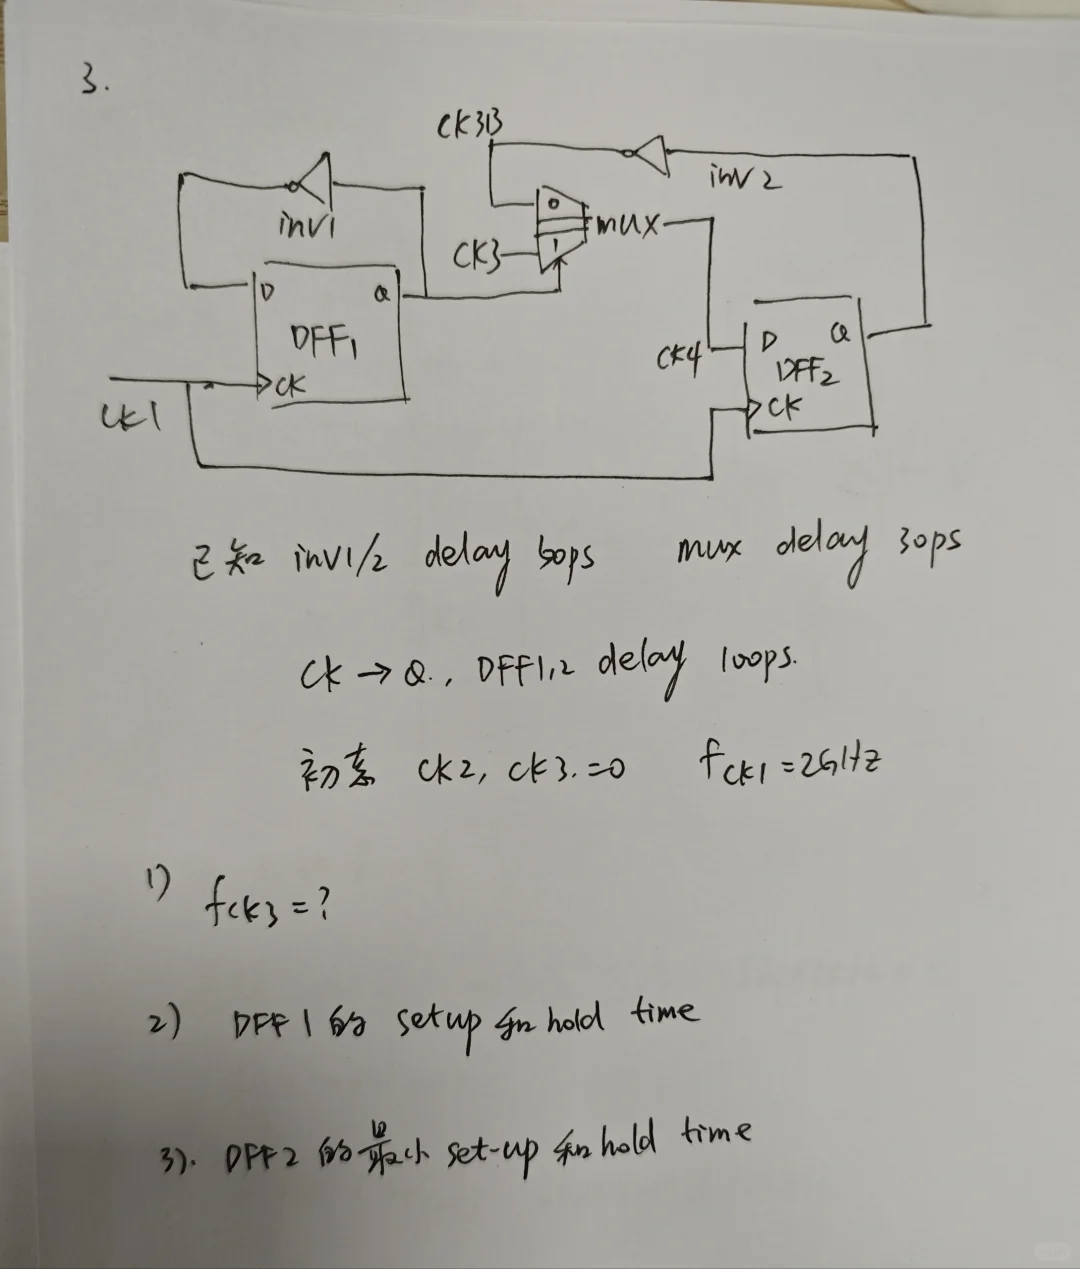 3.
CK3B
inv2
inv1
0
mux
CK3
1
D Q
DFF1
CK
CK1
CK4
D Q
DFF2
CK
已知 inv1/2 delay 50ps mux delay 30ps
CK → Q., DFF1,2 delay 100ps.
初态 CK2, CK3.=0 fCK1=2GHz
1) fCK3=?
2) DFF1的 setup和hold time
3). DFF2的最小 set-up 和hold time